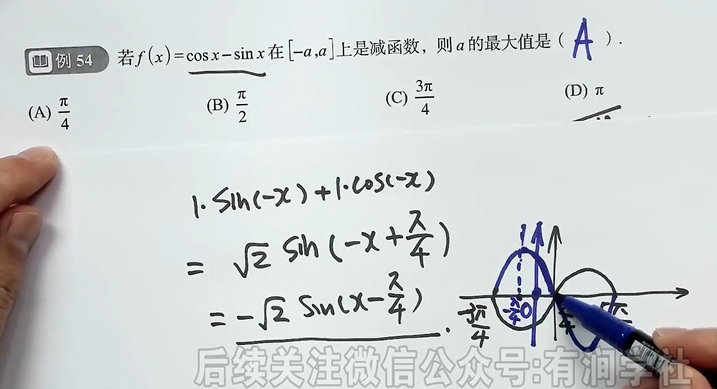 例 54 若 f(x)=cos x−sin x 在[−a,a]上是减函数，则 a 的最大值是（ A ）.
(A) π/4 (B) π/2 (C) 3π/4 (D) π
1·sin(-x)+1·cos(-x)
= √2 sin(-x+π/4)
= -√2 sin(x-π/4).
-3π/4 -π/4 0
后续关注微信公众号:有润学社